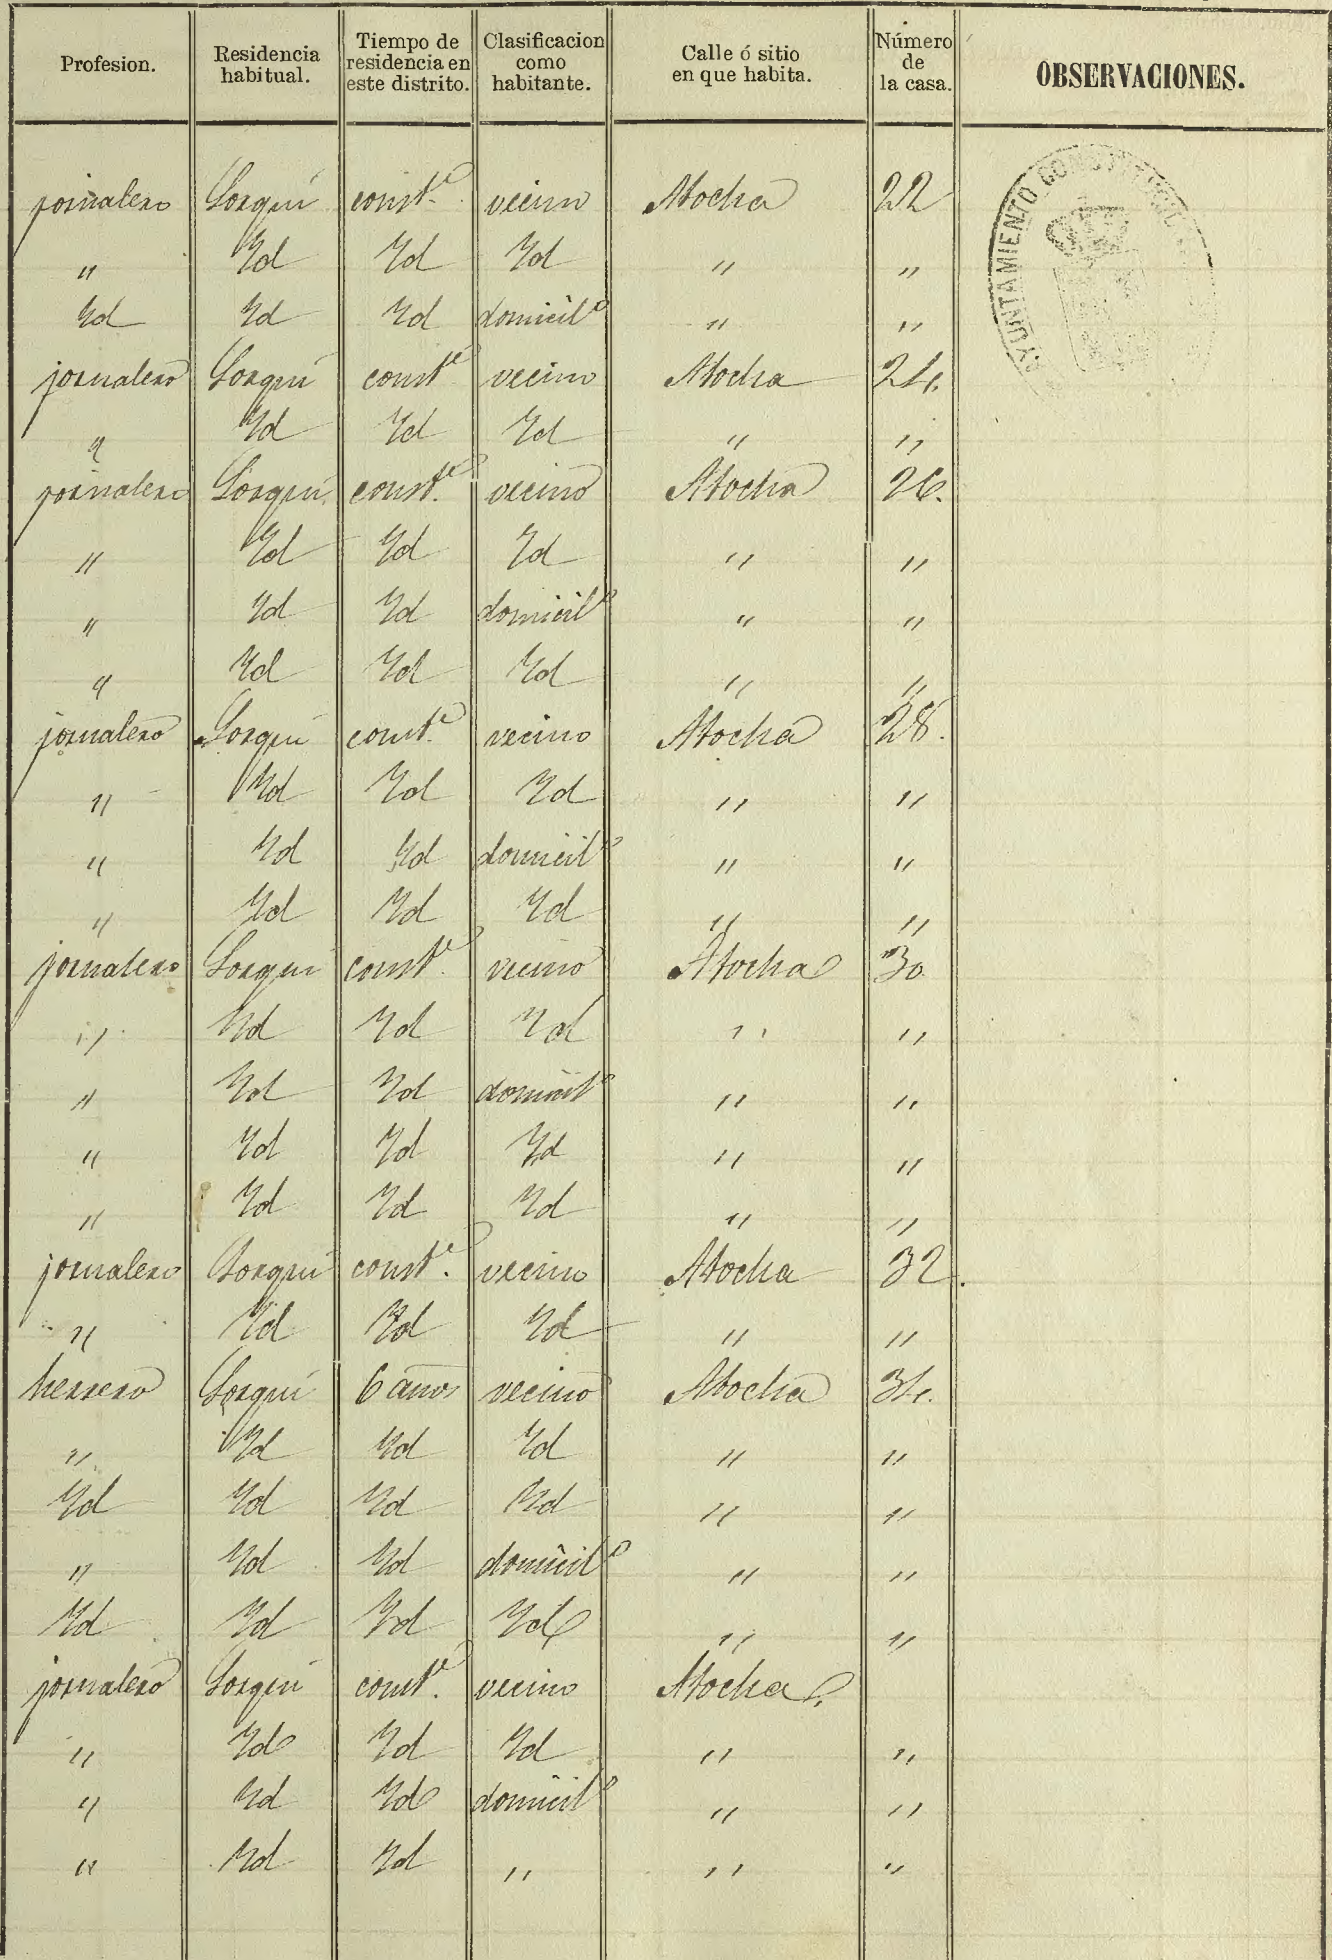 Profesion. Residencia habitual. Tiempo de residencia en este distrito. Clasificacion como habitante. Calle ó sitio en que habita. Número de la casa. OBSERVACIONES.
AYUNTAMIENTO
jornalero Lorquí const.e vecino Atocha 22
" Yd Yd Yd " "
Yd Yd Yd domicil.o " "
jornalero Lorquí const.e vecino Atocha 24.
" Yd Yd Yd " "
jornalero Lorquí const.e vecino Atocha 26.
" Yd Yd Yd " "
" Yd Yd domicil.o " "
" Yd Yd Yd " "
jornalero Lorquí const.e vecino Atocha 28.
" Yd Yd Yd " "
" Yd Yd domicil.o " "
" Yd Yd Yd " "
jornalero Lorquí const.e vecino Atocha 30
" Yd Yd Yd " "
" Yd Yd domicil.o " "
" Yd Yd Yd " "
" Yd Yd Yd " "
jornalero Lorquí const.e vecino Atocha 32.
" Yd Yd Yd " "
herrero Lorquí 6 años vecino Atocha 34.
" Yd Yd Yd " "
Yd Yd Yd Yd " "
" Yd Yd domicil.o " "
Yd Yd Yd Yd " "
jornalero Lorquí const.e vecino Atocha.
" Yd Yd Yd " "
" Yd Yd domicil.o " "
" Yd Yd " " "